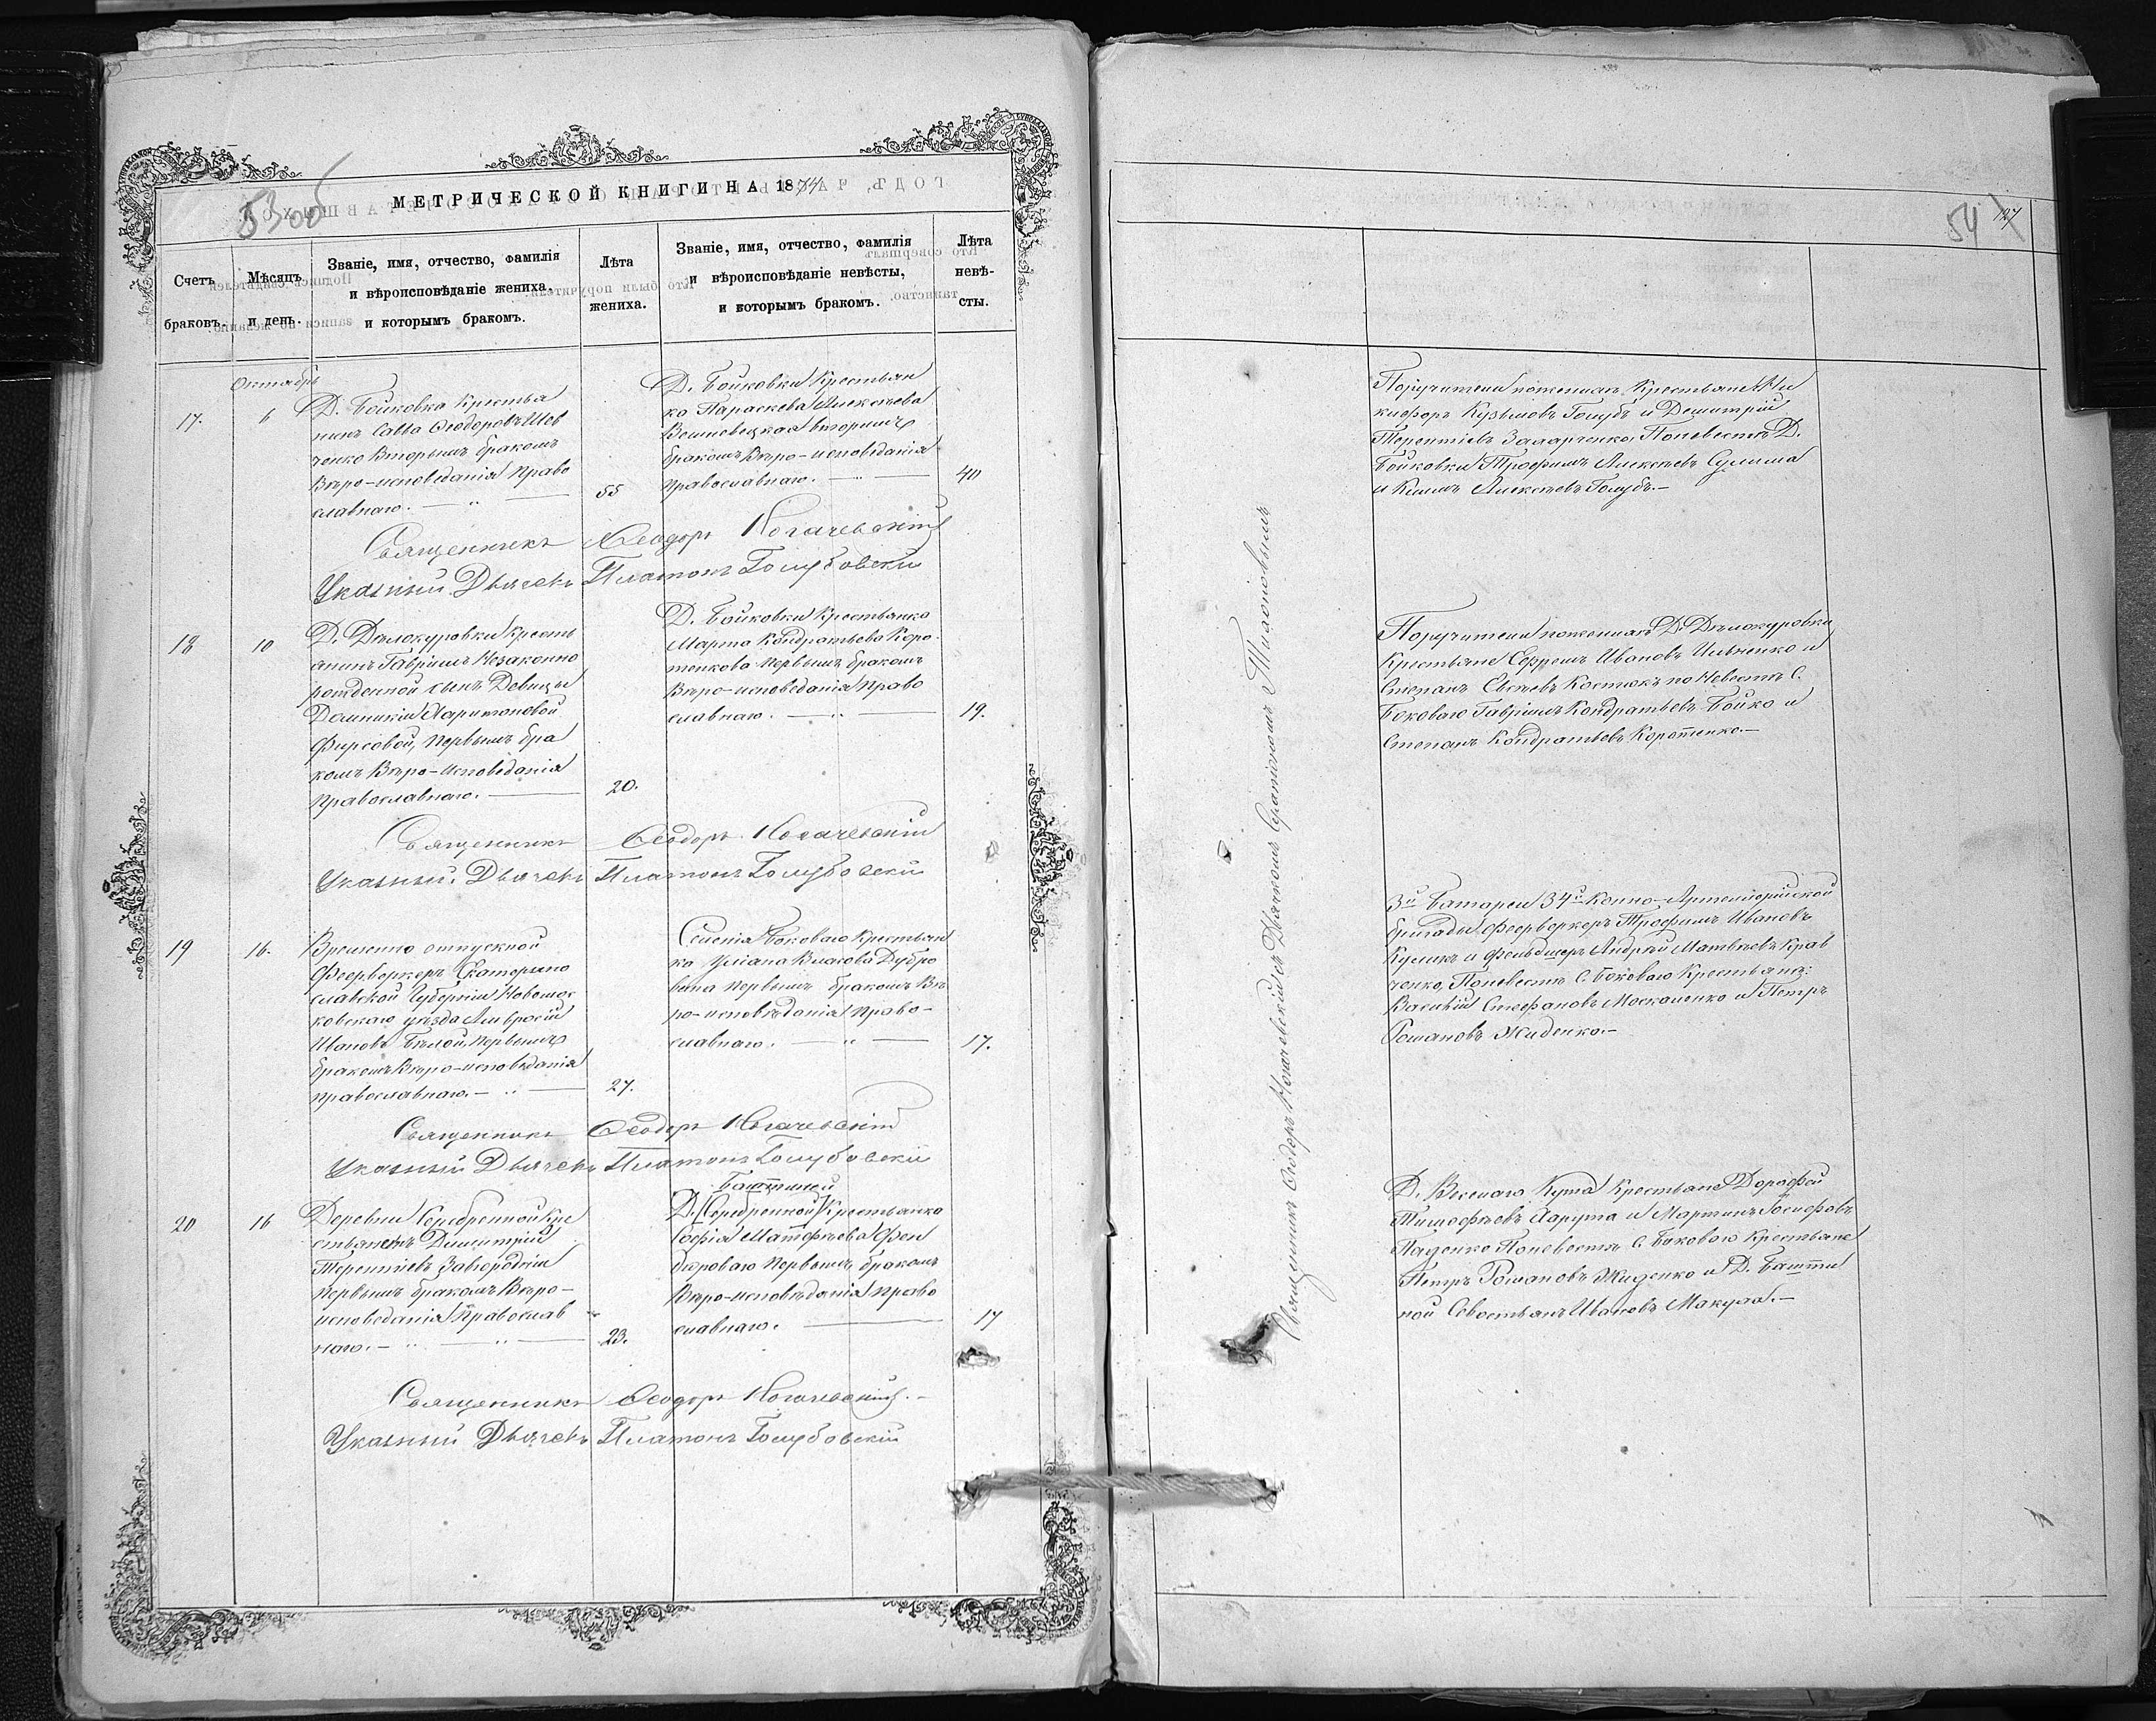 53 об
МЕТРИЧЕСКОЙ КНИГИ НА 1874
Счетъ браковъ.
Мѣсяцъ и день.
Званіе, имя, отчество, фамилія
и вѣроисповѣданіе жениха,
и которымъ бракомъ.
Лѣта
жениха.
Званіе, имя, отчество, фамилія
и вѣроисповѣданіе невѣсты,
и которымъ бракомъ.
Лѣта
невѣ-
сты.
Октябрь
17.
6
Д. Бойковка Крестья
нинъ Савва Ѳеодоровъ Шев
ченко Вторымъ бракомъ
Вѣро-исповеданія Право
славнаго.
55
Д. Бойковки Крестьян
ка Параскева Алексѣева
Вторымъ
бракомъ Вѣро-исповѣданія
Православнаго.
40
Священникъ Ѳеодоръ Ногачевскій
Указный Дьячекъ Платонъ Голубовскій
18
10
Д. Дѣлокуровки Кресть
анинъ Гавріилъ Незаконно
рожденной сынъ Девицы
Домникіи Харитоновой
Фирсовой, Первымъ бра
комъ Вѣро-Исповеданія
Православнаго.
20.
Д. Бойковки Крестьянка
Марта Кондратьева Коро
тенкова Первымъ бракомъ
Вѣро-исповеданія Право
славнаго.
19.
Священникъ Ѳеодоръ Ногачевскій
Указный Дьячекъ Платонъ Голубовскій
19
16.
Временно отпускной
Феерверкеръ Екатерино
славской Губерніи Новомос
ковскаго уѣзда Амвросій
Ивановъ Бѣлой, Первымъ
бракомъ Вѣро-исповѣданія
Православнаго.
27.
Селенія Боковаго Крестьян
ка Уліана Власова Дубро
вина Первымъ бракомъ Вѣ
ро-исповѣданія Право-
славнаго.
17.
Священникъ Ѳеодоръ Ногачевскій
Указный Дьячекъ Платонъ Голубовскій
20
16
Деревни Серебренной Кре
стьянинъ Димитрій
Терентіевъ Завгородній
Первымъ бракомъ Вѣро-
исповеданія Православ
наго.
23.
Баштиной
Д. (Серебренной) Крестьянка
Софія Матфѣева
Первымъ бракомъ
Вѣро-исповѣданія Право
славнаго.
17
Священникъ Ѳеодоръ Ногачевскій.
Указный Дьячекъ Платонъ Голубовскій
54
127
Священникъ Ѳеодоръ Ногачевскій съ Дьячкомъ
Поручители по женихѣ Крестьяне Ни
кифоръ Кузьмовъ Голубъ и Димитрій
Терентіевъ Захарченко, По невестѣ Д.
Бойковки Трофимъ Алексѣевъ Сулима
и Климъ Алексѣевъ Голубъ.
Поручители по женихѣ Д. Дѣлокуровки
Крестьяне Ефремъ Ивановъ Ильченко и
Степанъ Костюкъ по Невестѣ С.
Боковаго Гавріилъ Кондратьевъ Бойко и
Степанъ Кондратьевъ Коротенко.
3й Батареи 34й Конно-Артиллерійской
бригады Феерверкеръ Трофимъ Ивановъ
Куликъ и Фельдшеръ Андрей Матвѣевъ Крав
ченко, По невестѣ С. Боковаго Крестьяне:
Василій Стефановъ Москаленко и Петръ
Романовъ Жиденко.
Д. Веселаго Кута Крестьяне Дорофей
Тимофѣевъ Харута и Мартинъ Іосифовъ
По невестѣ С. Боковаго Крестьяне
Петръ Романовъ Жиденко и Д. Башти
ной Севостьянъ Ивановъ Макуха.